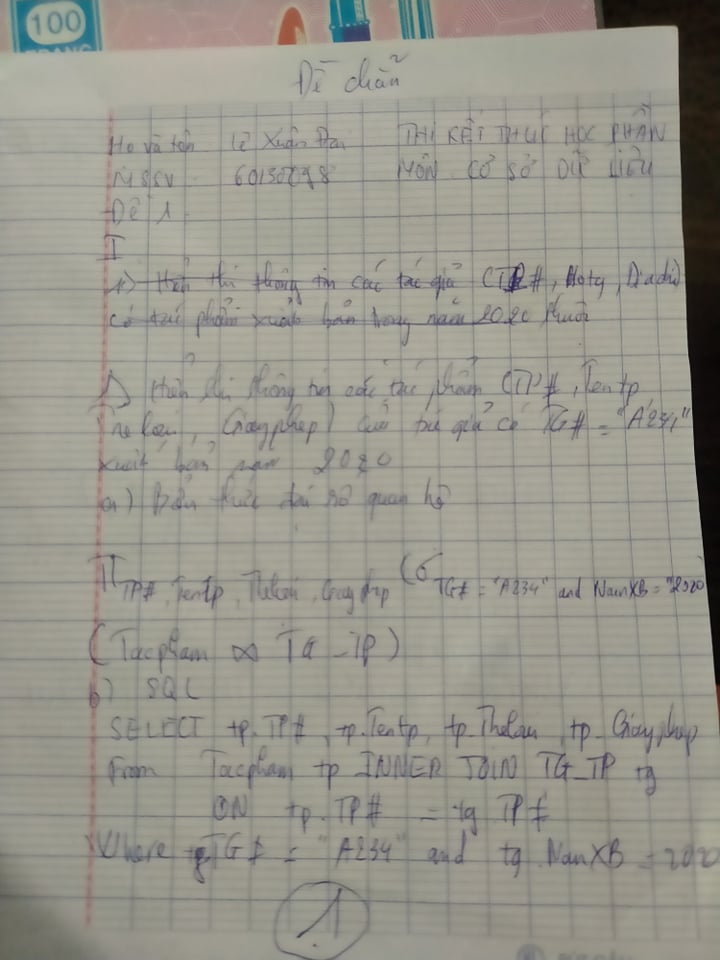 100
TRANG
Đề chẵn
Họ và tên Lê Xuân Đại THI KẾT THÚC HỌC PHẦN
MSSV 60130098 MÔN CƠ SỞ DỮ LIỆU
Đề 1
I
1) Hiển thị thông tin các tác giả (TG#, Hotg, Diachi)
có tác phẩm xuất bản trong năm 2020
1) Hiển thị thông tin các tác phẩm (TP#, Tentp
Theloai, Giayphep) của tác giả có TG# = "A234"
xuất bản năm 2020
a) Biểu thức đại số quan hệ
π TP#, Tentp, Theloai, Giayphep (σ TG# = "A234" and NamXB = "2020"
(Tacpham ∞ TG_TP)
b) SQL
SELECT tp.TP#, tp.Tentp, tp.Theloai, tp.Giayphep
From Tacpham tp INNER JOIN TG_TP tg
ON tp.TP# = tg TP#
Where tg TG# = "A234" and tg NamXB = 2020
1